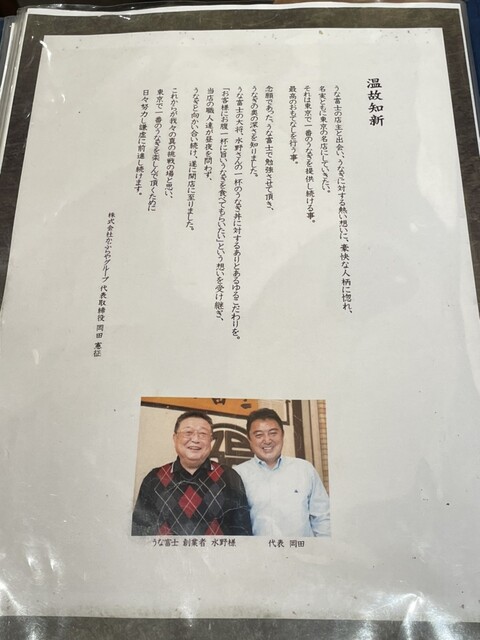 温故知新
うな富士の店主と出会い、うなぎに対する熱い想いに、豪快な人柄に惚れ、
名実ともに東京の名店にしていきたい。
それは東京で一番のうなぎを提供し続ける事。
最高のおもてなしを行う事。
念願であった、うな富士で勉強させて頂き、
うなぎの奥の深さを知りました。
うな富士の大将、水野さんの一杯のうなぎ丼に対するありとあらゆるこだわりを。
「お客様にお腹一杯に旨いうなぎを食べてもらいたい」という想いを受け継ぎ、
当店の職人達が昼夜を問わず、
うなぎと向かい合い続け、遂に開店に至りました。
これからが我々の真の挑戦の場と思い、
東京で一番のうなぎを楽しんで頂くために
日々努力し謙虚に前進し続けます。
株式会社かぶらやグループ 代表取締役 岡田 憲征
うな富士 創業者 水野様
代表 岡田